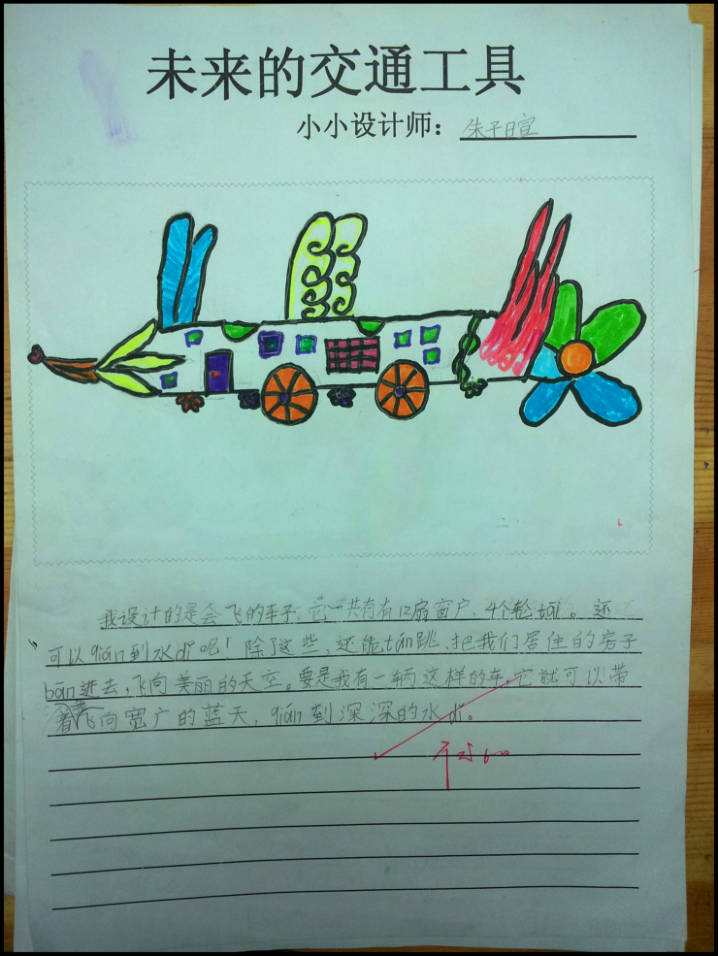 未来的交通工具
小小设计师：朱子日宣
我设计的是会飞的车子，它一共有有12扇窗户、4个轮tāi。还
可以qián到水dǐ吧！除了这些，还能tán跳、把我们居住的房子
bān进去，飞向美丽的天空。要是我有一辆这样的车，它就可以带
着飞向宽广的蓝天，qián到深深的水dǐ。